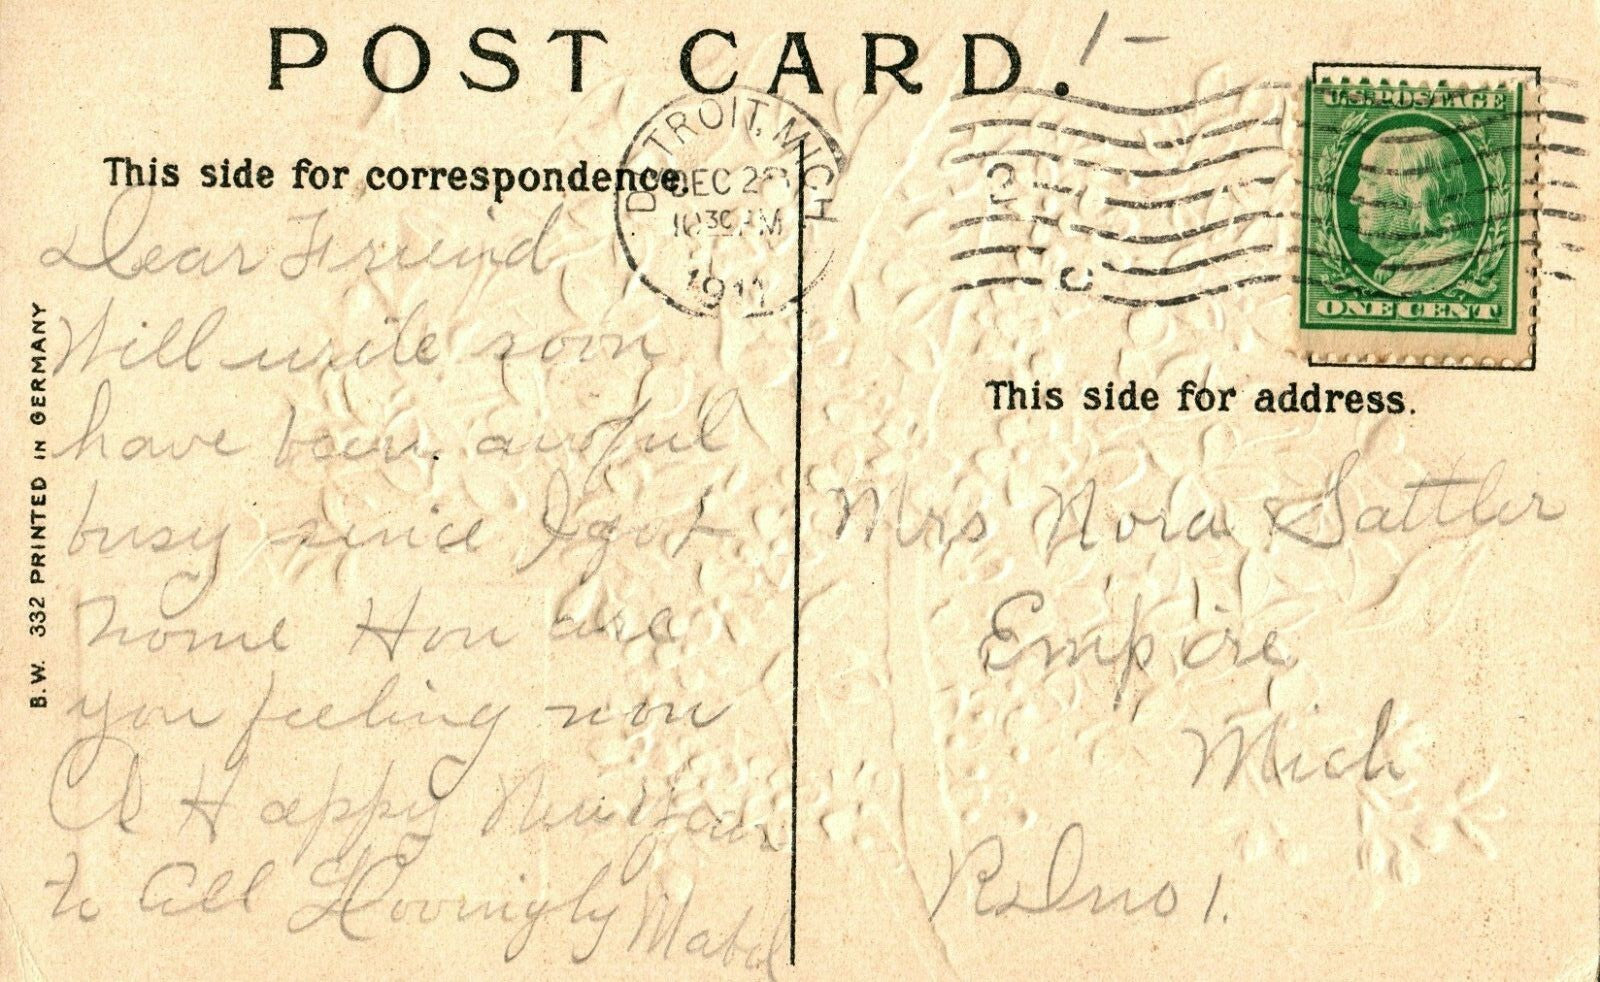 POST CARD.
1-
This side for correspondence.
DETROIT, MICH
DEC 28
10 30 AM
1911
U.S. POSTAGE
ONE CENT
This side for address.
Dear Friend
Will write soon
have been awful
busy since I got
home How are
you feeling now
A Happy New Year
to all Lovingly Mabel
Mrs Nora Sattler
Empire
Mich
R D no 1.
B.W. 332 PRINTED IN GERMANY